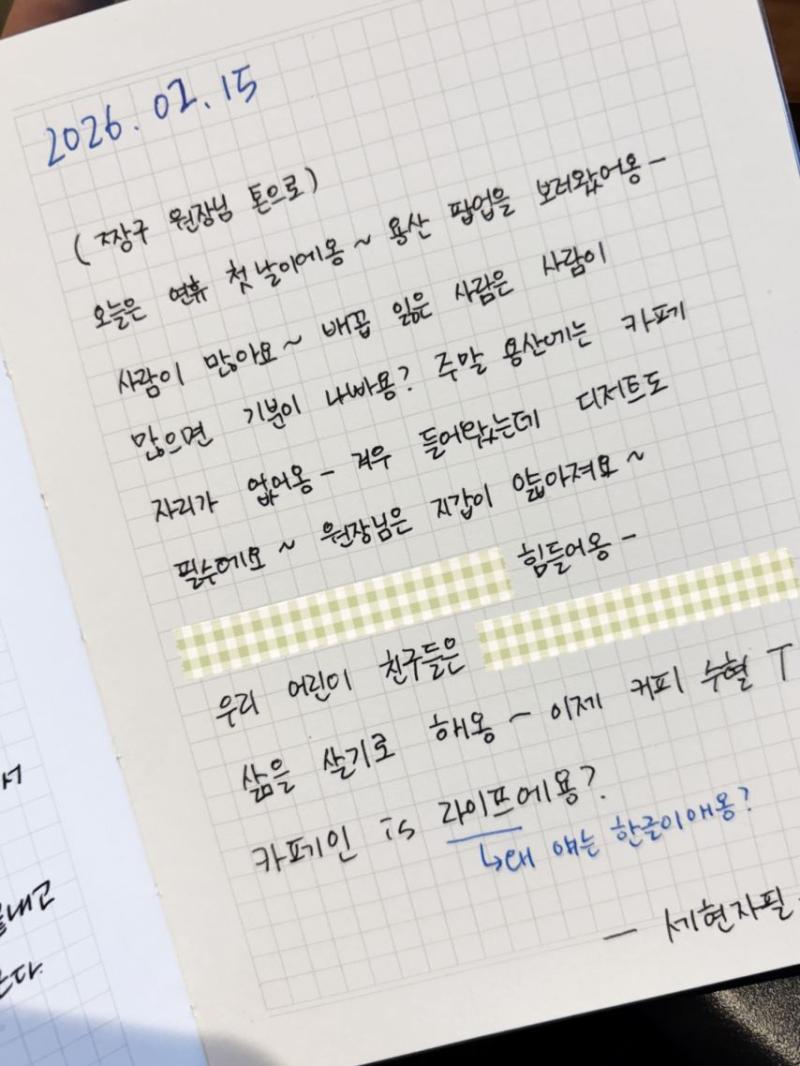 2026.02.15
(짱구 원장님 톤으로)
오늘은 연휴 첫날이에용~ 용산 팝업을 보러왔어용-
사람이 많아요~ 배꼽 잃은 사람은 사람이
많으면 기분이 나빠용? 주말 용산에는 카페
자리가 없어용- 겨우 들어왔는데 디저트도
필수에요~ 원장님은 지갑이 얇아져요~
힘들어용-
우리 어린이 친구들은
삶을 살기로 해용~ 이제 커피 수혈 T
카페인 is 라이프에용?
↳왜 얘는 한글이애용?
— 세현자필
내고